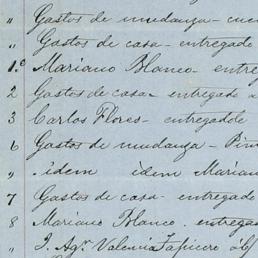 " Gastos de mudanza - cue
" Gastos de casa - entregado
1.º Mariano Blanco - entreg
2 Gastos de casa - entregado a
3 Carlos Flores - entregadole
6 Gastos de mudanza - Pin
" idem idem Marian
7 Gastos de casa - entregado
8 Mariano Blanco . entrega
" J. Agⁿ Valencia Tapicero